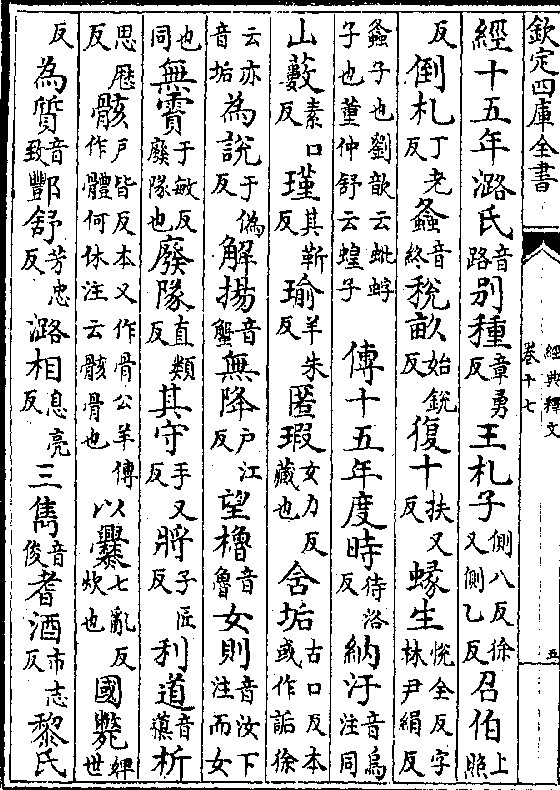 欽定四庫全書
經典釋文
卷十七
五
經十五年潞氏音路別種章勇反王札子側八反徐又側乙反召伯上照
反倒札丁老反螽音終稅畝始銳反復十扶又反蝝生悅全反字林尹絹反
螽子也劉歆云蚍蜉子也董仲舒云蝗子傳十五年度時待洛反納汙音烏注同
山藪素口反瑾其靳反瑜羊朱反匿瑕女力反藏也含垢古口反本或作詬徐
云亦音垢為說于偽反解揚音蟹無降戶江反望櫓音魯女則音汝下注而女
也同無霣于敏反廢隊也廢隊直類反其守手又反將子匠反利道音導析
思歷反骸戶皆反本又作骨公羊傳作體何休注云骸骨也以爨七亂反炊也國斃婢世
反為質音致酆舒芳忠反潞相息亮反三雋音俊耆酒市志反黎氏